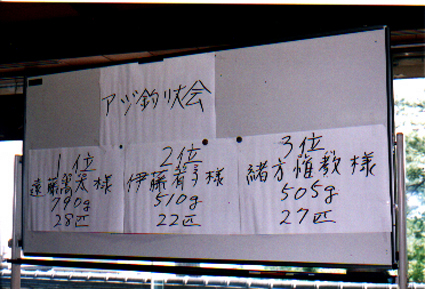 アジ釣り大会
1位
遠藤 太様
790g
28匹
2位
伊藤 子様
510g
22匹
3位
緒方惟教様
505g
27匹